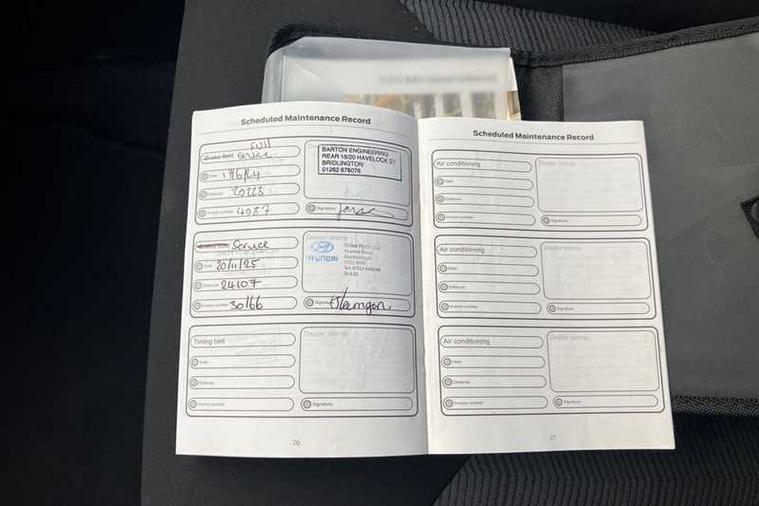 Scheduled Maintenance Record
Full
Service
Date 17/6/24
Distance 20223
Invoice number 4087
BARTON ENGINEERING
REAR 18/20 HAVELOCK ST
BRIDLINGTON
01262 678076
Signature
Service
Date 20/11/25
Distance 24107
Invoice number 30166
Dealer stamp
HYUNDAI
Signature
Timing belt
Date
Distance
Invoice number
Dealer stamp
Signature
26
Scheduled Maintenance Record
Air conditioning
Date
Distance
Invoice number
Dealer stamp
Signature
Air conditioning
Date
Distance
Invoice number
Dealer stamp
Signature
Air conditioning
Date
Distance
Invoice number
Dealer stamp
Signature
27